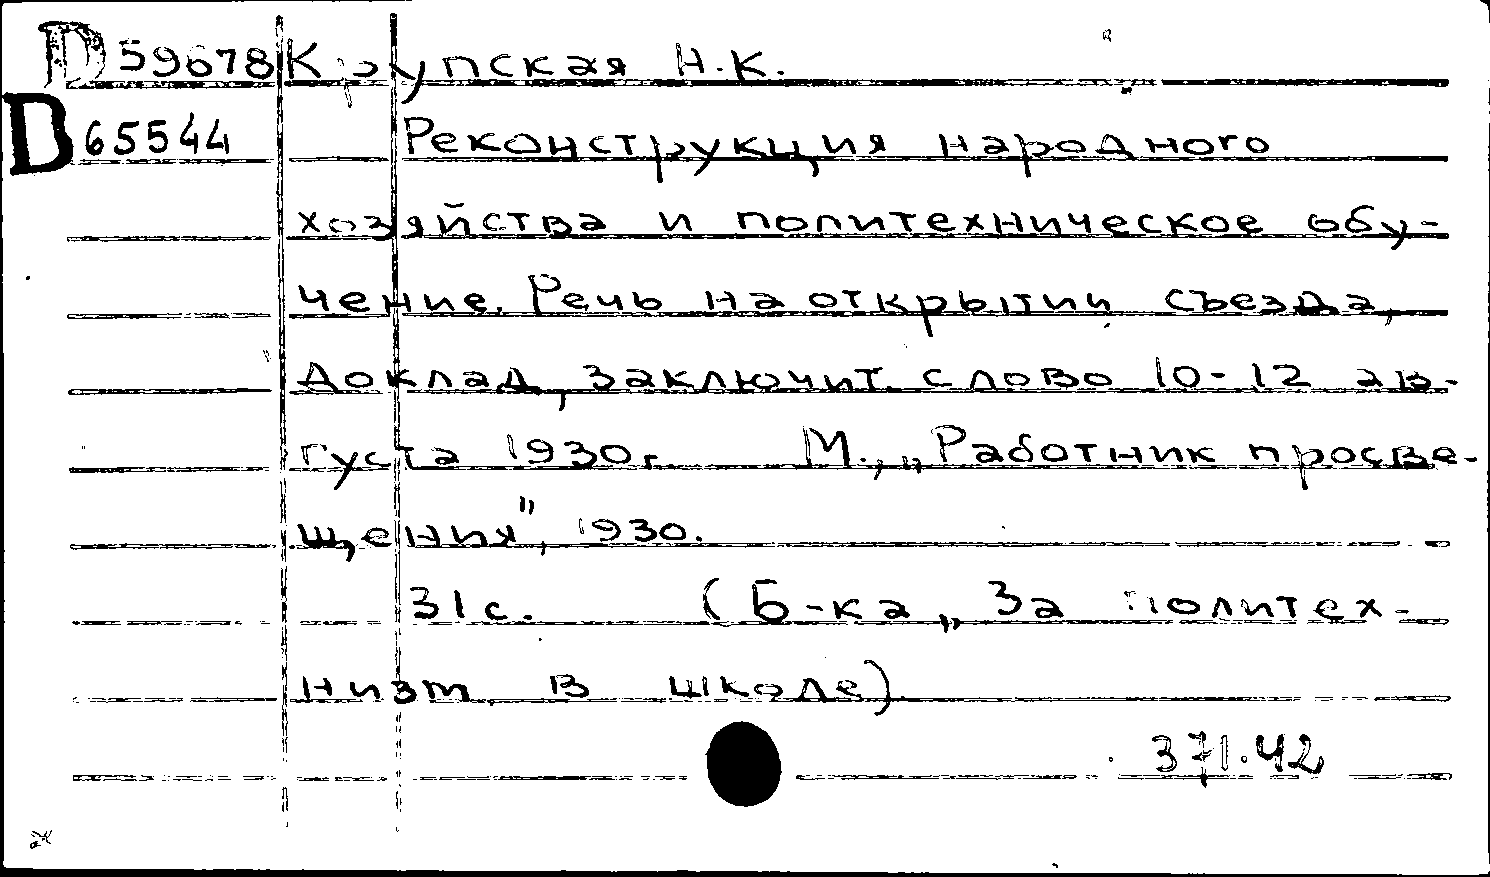 D 59678 Крупская Н.К.
D 65544 Реконструкция народного
хозяйства и политехническое обу-
чение. Речь на открытии съезда,
доклад, заключит. слово 10-12 ав-
густа 1930г. М., „Работник просве-
щения", 1930.
31с. (Б-ка „За политех-
низм в школе)
371.42